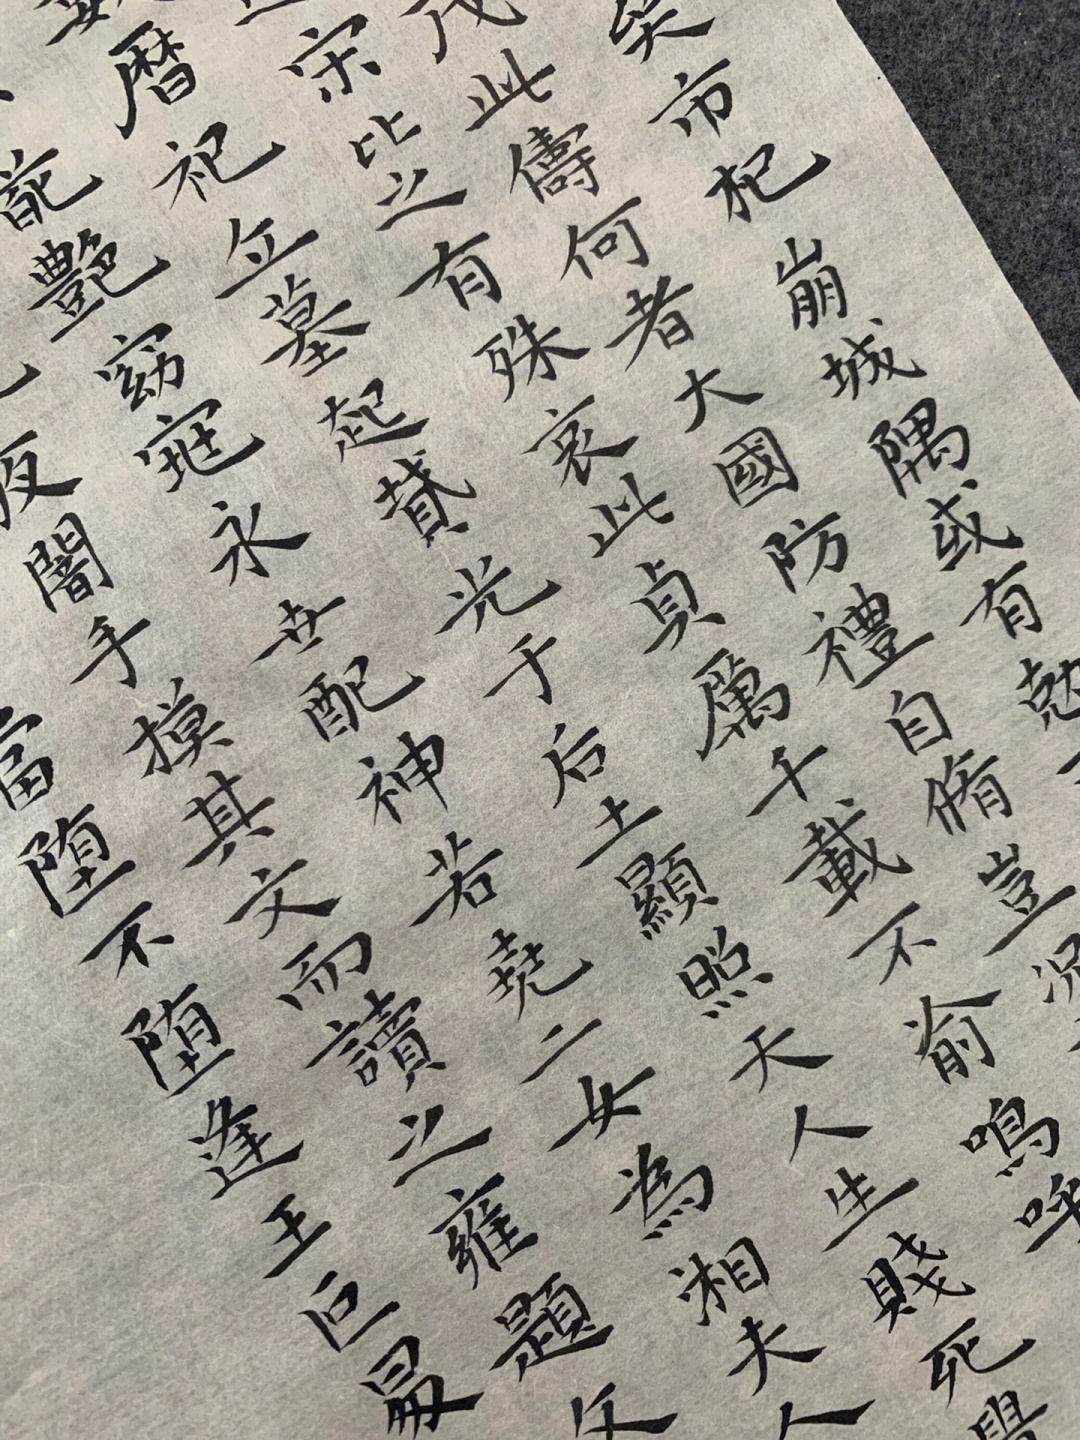 哭市杞崩城隅或有尅
茂此儔何者大國防禮自脩豈況
宗比之有殊哀此貞厲千載不渝嗚呼
曆祀立墓起墳光于后土顯照天人生賤死貴
葩艷窈窕永世配神若堯二女為湘夫人
夜闇手摸其文而讀之雍題文
當墮不墮逢王叵